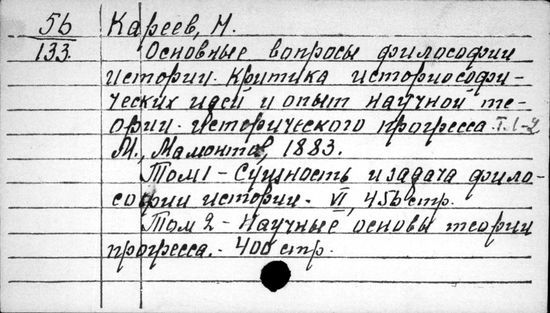 56 Кареев, Н.
133. Основные вопросы философии
истории. Критика историософи-
ческих идей и опыт научной те-
ории исторического прогресса. Т. 1-2
М., Мамонтов, 1883.
Том 1 - Сущность и задача фило-
софии истории. VI, 456 стр.
Том 2 - Научные основы теории
прогресса. - 400 стр.